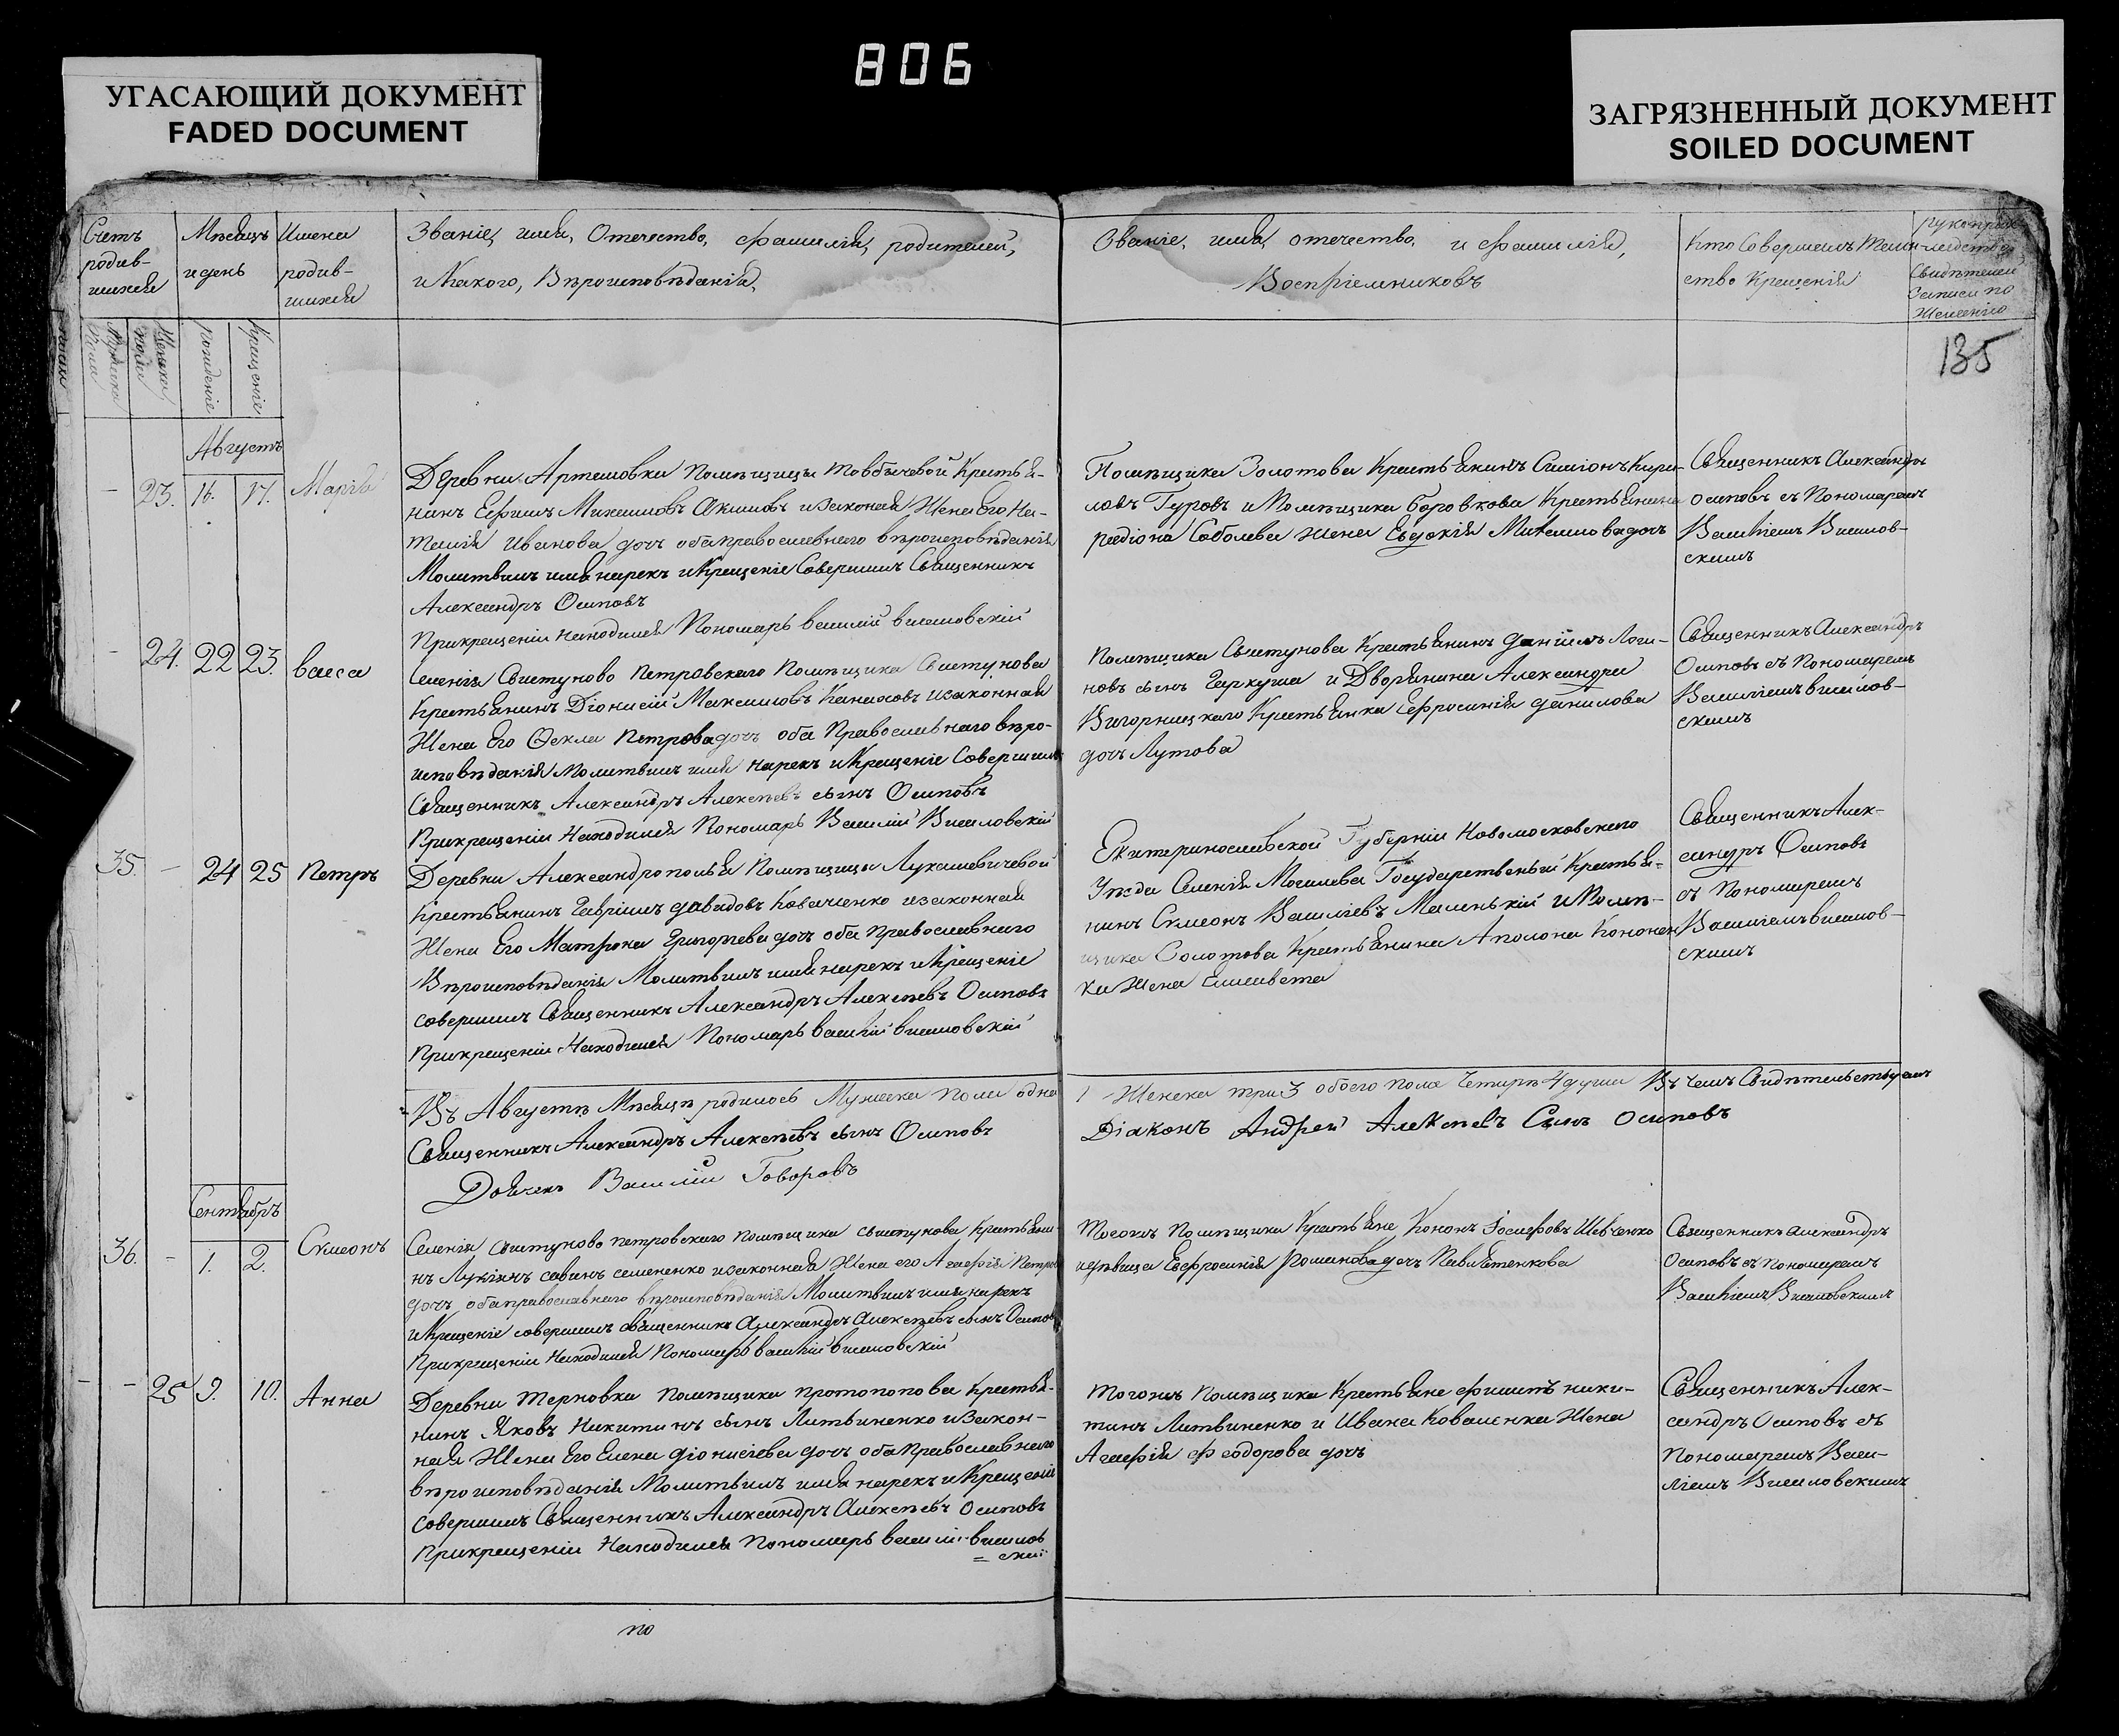 806
УГАСАЮЩИЙ ДОКУМЕНТ
FADED DOCUMENT
ЗАГРЯЗНЕННЫЙ ДОКУМЕНТ
SOILED DOCUMENT
Счетъ родив-шихся
Мѣсяцъ и день
Имена родив-шихся
Званіе, имя, Отечество, фамилія, родителей,
и Какого, Вѣроисповѣданія,
Званіе, имя, отечество, и фамилія,
Воспріемниковъ
Кто Совершалъ Таин-
ство Крещенія
рукоприк-
ладство
Свидѣтелей
Записи по
Желанію
рожденіе
Крещеніе
135
Августъ
23. 16. 17. Марія
Деревни Артемовки помѣщицы Товбичевой Крестья-
нинъ Ефимъ Михаиловъ Акимовъ и законная Жена Его На-
талія Иванова дочь оба православнаго вѣроисповѣданія
Молитвилъ имя нарекъ и Крещеніе Совершилъ Священникъ
Александръ Осиповъ
При крещеніи Находился Пономарь василій висиловскій
Помѣщика Золотова Крестьянинъ Симіонъ Кири-
ловъ Гуровъ и Помѣщика Боровкова Крестьянина
радіона Соболева жена Евдокія Михаилова дочь
Священникъ Александръ
осиповъ съ Пономаремъ
Василіемъ Висилов-
скимъ
24. 22 23. васса
Селенія Свистуново Петровскаго Помѣщика Свистунова
Крестьянинъ Діонисій Максимовъ Канахов и законная
Жена Его Фекла Петрова дочь оба Православнаго вѣро-
исповѣданія Молитвилъ имя нарекъ и Крещеніе Совершилъ
Священникъ Александръ Алексѣевъ сынъ Осиповъ
При крещеніи Находился Пономарь Василій Висиловскій
Помѣщика Свистунова Крестьянинъ даніилъ Логи-
новъ сынъ Гаркуша и Дворянина Александра
Вигорницкаго Крестьянка Ефросинія данилова
дочь Лутова
Священникъ Александръ
Осиповъ съ Пономаремъ
Василіемъ висилов-
скимъ
35. – 24 25 Петръ
Деревни Александрополья Помѣщицы Лукашевичевой
Крестьянинъ Гавріилъ давидовъ Коваленко и законная
Жена Его Матрона Григорьева дочь оба Православнаго
Вѣроисповѣданія Молитвилъ имя нарекъ и Крещеніе
совершилъ Священникъ Александръ Алексѣевъ Осиповъ
При крещеніи Находился Пономарь василій висиловскій
Екатеринославской Губерніи Новомосковскаго
Уѣзда Селенія Могилева Государственый Крестья-
нинъ Симеонъ Василіевъ Маленькій и Помѣ-
щика Золотова Крестьянина Аполона Кононен-
ка Жена Елисавета
Священникъ Алек-
сандръ Осиповъ
съ Пономаремъ
Василіемъ висилов-
скимъ
Въ Августѣ Мѣсяцѣ родилось Мужеска Пола одна
1 Женска три 3 обоего пола Четырѣ 4 души Въ чемъ Свидѣтельствуемъ
Священникъ Александръ Алексѣевъ сынъ Осиповъ
Діаконъ Андрей Алексѣевъ Сынъ Осиповъ
Дьячекъ Василій Говоровъ
Сентябрь
36. – 1. 2. Симеонъ
Селенія свистуново петровскаго помѣщика свистунова Крестьяни-
нъ Лукіянъ савинъ семененко и законная Жена его Агафія Петрова
дочь оба православнаго вѣроисповѣданія Молитвилъ имя нарекъ
и Крещеніе совершилъ священникъ Александръ Алексѣевъ сынъ Осиповъ
При крещеніи Находился Пономарь василій висиловскій
Тогожъ Помѣщика Крестьяне Кононъ Іосифовъ Шевченко
и дѣвица Евфросинія Романова дочь Павлютенкова
Священникъ александръ
Осиповъ съ пономаремъ
Василіемъ Висиловскимъ
25 9. 10. Анна
Деревни Терновки помѣщика протопопова крестья-
нинъ Яковъ Никитинъ сынъ Литвиненко и Закон-
ная Жена Его Елена діонисіева дочь оба Православнаго
вѣроисповѣданія Молитвилъ имя нарекъ и Крещеніе
Совершилъ Священникъ Александръ Алексѣевъ Осиповъ
При крещеніи Находился Пономарь василій висилов
= скій
Тогожъ Помѣщика Крестьяне филипъ ники-
тинъ Литвиненко и Ивана Коваленка Жена
Агафія феодорова дочь
Священникъ Алек-
сандръ Осиповъ съ
Пономаремъ Васи-
ліемъ Висиловскимъ
по